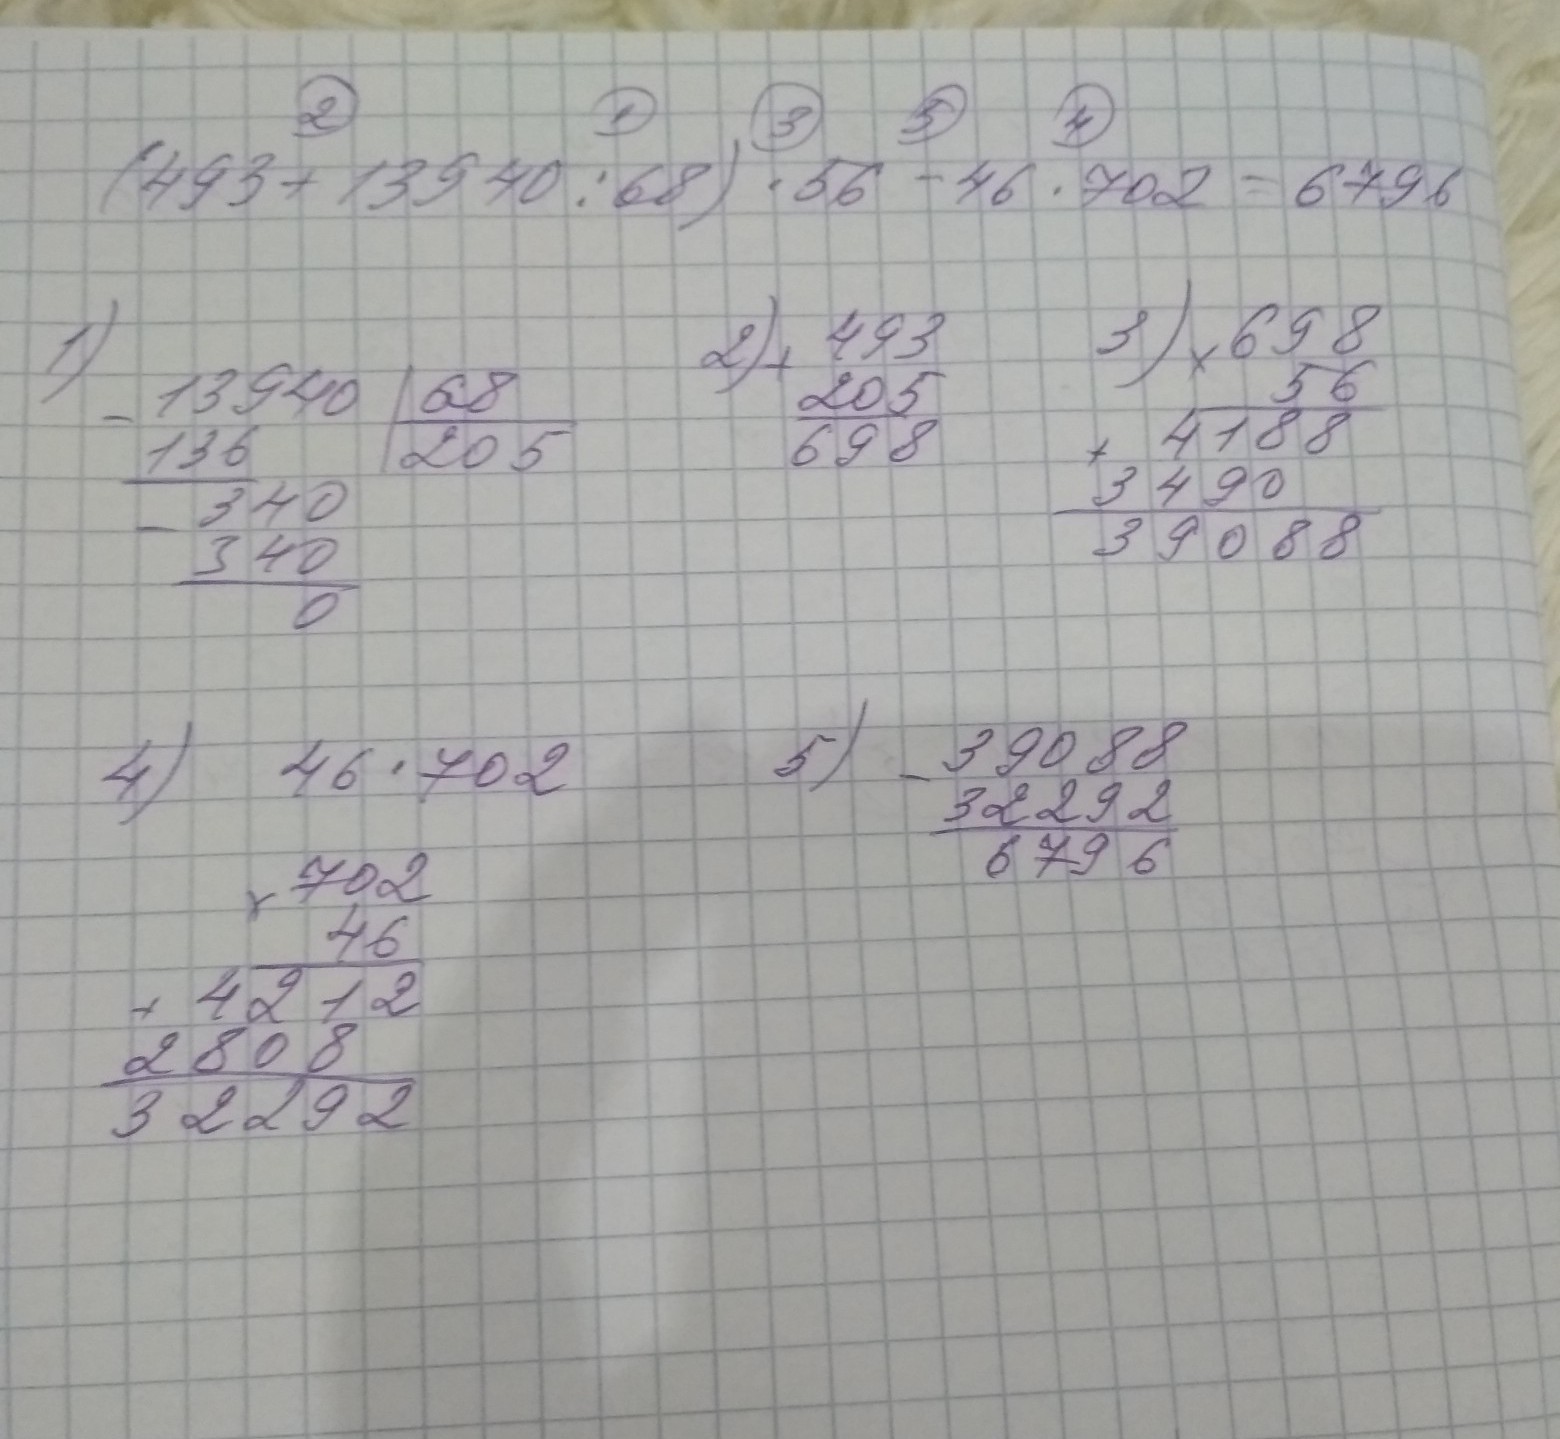 ② ① ③ ⑤ ④
(493 + 13940 : 68) · 56 - 46 · 702 = 6796
1)
- 13940 | 68
136 | 205
- 340
340
0
2) + 493
205
698
3) × 698
56
+ 4188
3490
39088
4) 46 · 702
× 702
46
+ 4212
2808
32292
5) - 39088
32292
6796